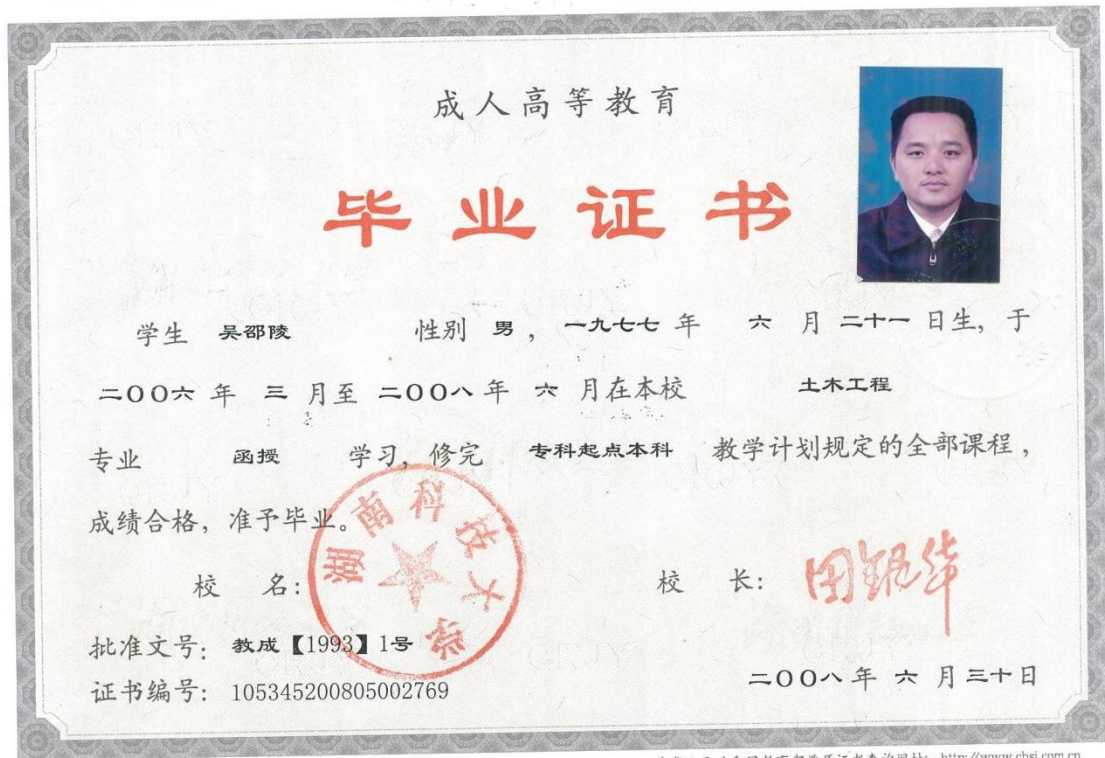 成人高等教育
毕业证书
学生 吴邵陵 性别 男, 一九七七 年 六 月 二十一 日生, 于
二00六 年 三 月至 二00八 年 六 月在本校 土木工程
专业 函授 学习, 修完 专科起点本科 教学计划规定的全部课程,
成绩合格, 准予毕业。
湖南科技大学
校 名: 校 长:
批准文号: 教成【1993】1号
证书编号: 105345200805002769
二00八 年 六 月 三十日
学历证书查询网址: http://www.chsi.com.cn